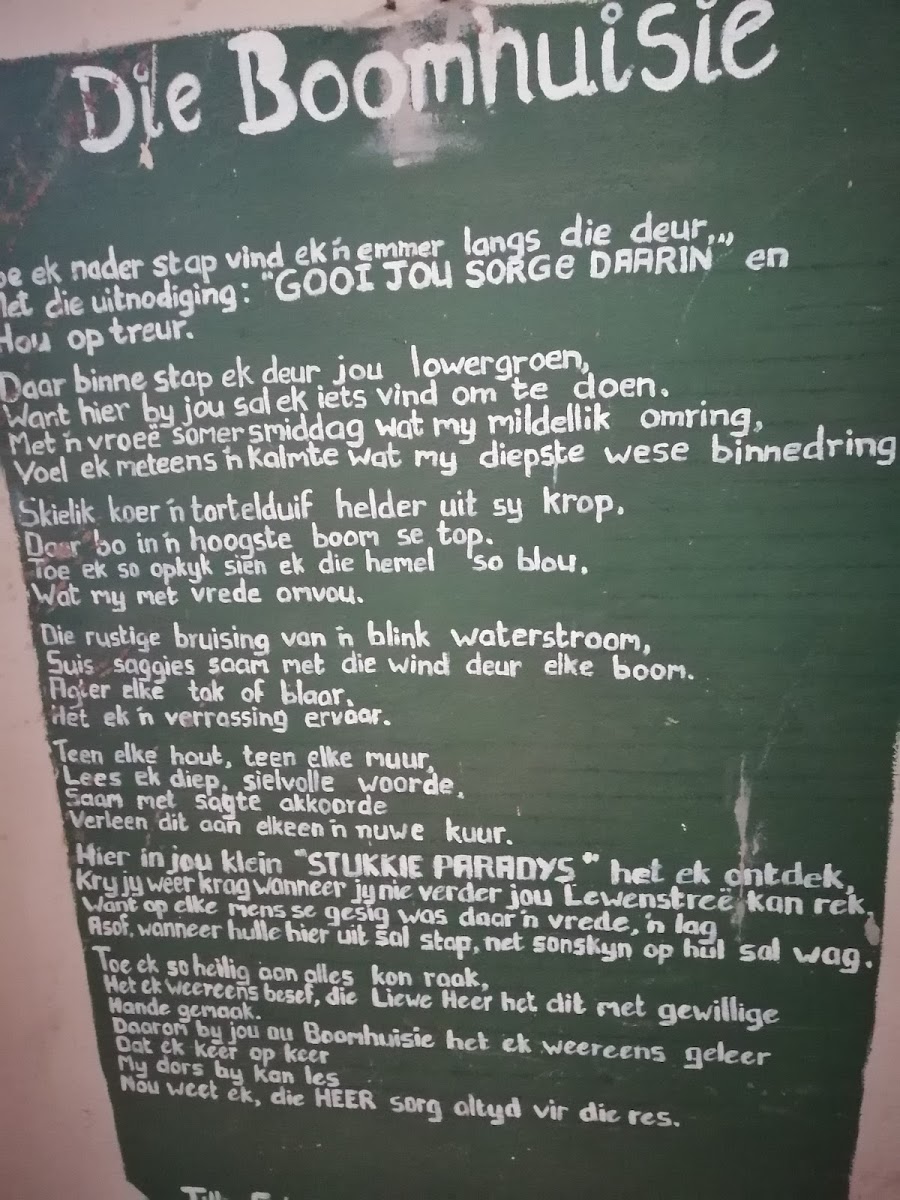 Die Boomhuisie
ek nader stap vind ek 'n emmer langs die deur,,,
die uitnodiging: "GOOI JOU SORGE DAARIN" en
Hou op treur.
Daar binne stap ek deur jou lowergroen,
Want hier by jou sal ek iets vind om te doen.
Met 'n vroeë somersmiddag wat my mildellik omring,
Voel ek meteens 'n kalmte wat my diepste wese binnedring
Skielik koer 'n tortelduif helder uit sy krop.
Daar bo in 'n hoogste boom se top.
Toe ek so opkyk sien ek die hemel so blou,
Wat my met vrede omvou.
Die rustige bruising van 'n blink waterstroom,
Suis saggies saam met die wind deur elke boom.
Agter elke tak of blaar,
Het ek 'n verrassing ervaar.
Teen elke hout, teen elke muur,
Lees ek diep, sielvolle woorde,
Saam met sagte akkoorde
Verleen dit aan elkeen 'n nuwe kuur.
Hier in jou klein "STUKKIE PARADYS" het ek ontdek,
Kry jy weer krag wanneer jy nie verder jou Lewenstreë kan rek,
Want op elke mens se gesig was daar 'n vrede, 'n lag
Asof, wanneer hulle hier uit sal stap, net sonskyn op hul sal wag.
Toe ek so heilig aan alles kon raak,
Het ek weereens besef, die Liewe Heer het dit met gewillige
Hande gemaak.
Daarom by jou ou Boomhuisie het ek weereens geleer
Dat ek keer op keer
My dors by kan les
Nou weet ek, die HEER sorg altyd vir die res.